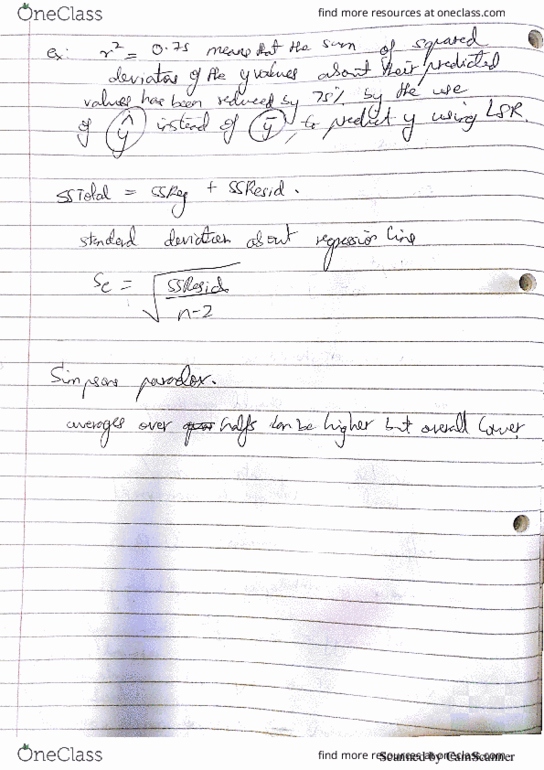 OneClass
find more resources at oneclass.com
ex: r² = 0.75 means that the sum of squared
deviations of the y values about their predicted
values has been reduced by 75% by the use
of ŷ instead of ȳ, to predict y using LSR.
SSTotal = SSReg + SSResid.
standard deviation about regression line
Se = √(SSResid / n-2)
Simpsons paradox.
averages over halfs can be higher but overall lower
OneClass
find more resources at oneclass.com
Scanned by CamScanner